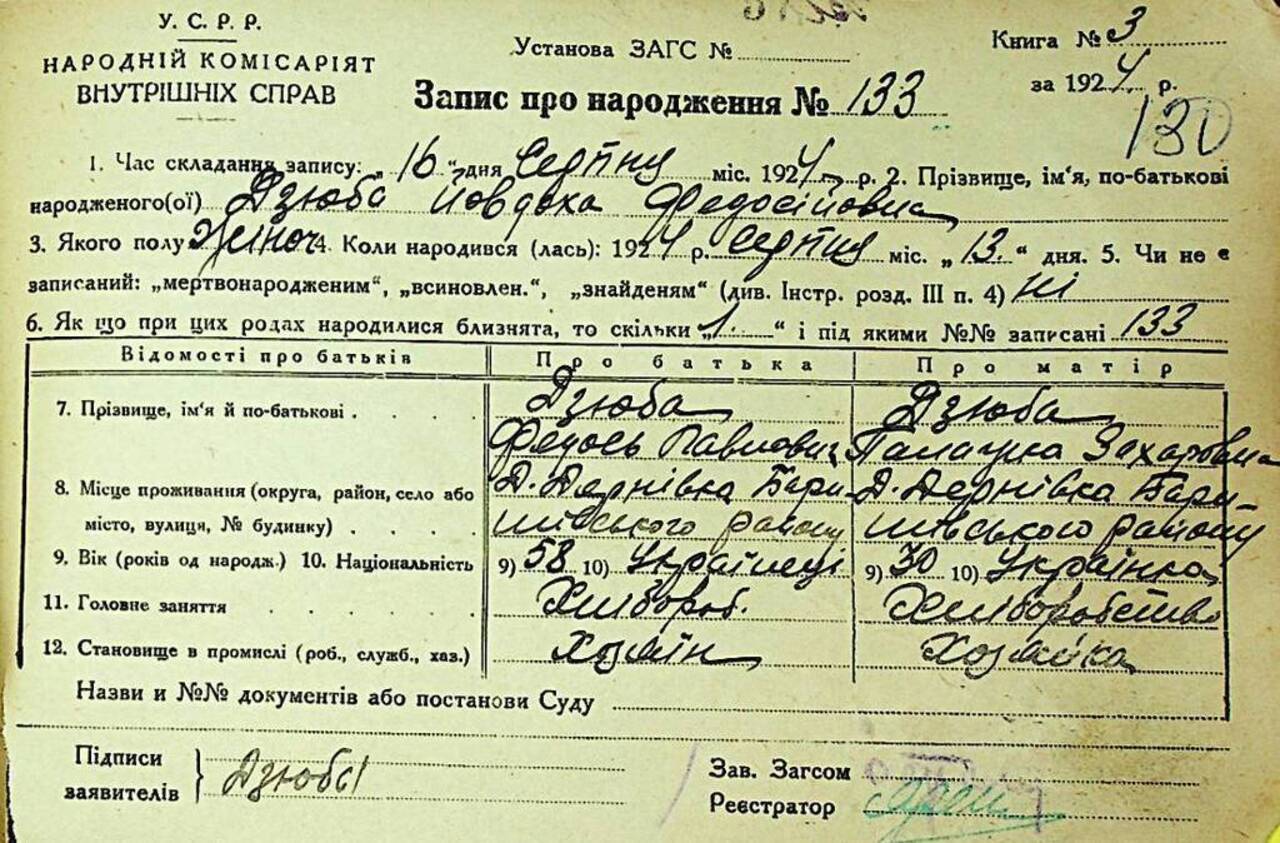 У. С. Р. Р.
НАРОДНІЙ КОМІСАРІЯТ
ВНУТРІШНІХ СПРАВ
Установа ЗАГС №
Книга № 3
за 1924 р.
Запис про народження № 133
130
1. Час складання запису: „16“ дня Серпня міс. 1924 р. 2. Прізвище, ім‘я, по-батькові
народженого(ої) Дзюба Йовдоха Федосіївна
3. Якого полу Жіноч 4. Коли народився (лась): 1924 р. Серпня міс. „13.“ дня. 5. Чи не є
записаний: „мертвонародженим“, „всиновлен.“, „знайденям“ (див. Інстр. розд. III п. 4) Ні
6. Як що при цих родах народилися близнята, то скільки „1.“ і під якими №№ записані 133
Відомості про батьків Про батька Про матір
7. Прізвище, ім‘я й по-батькові . . . . Дзюба Дзюба
Федось Павлович Палажка Захаровна
8. Місце проживання (округа, район, село або Д. Дернівка Бари- Д. Дернівка Бари-
місто, вулиця, № будинку) . . . . шівського району шівського району
9. Вік (років од народж.) 10. Національність 9) 58 10) Українець 9) 30 10) Українка
11. Головне заняття . . . . . Хлібороб. Хліборобство
12. Становище в промислі (роб., служб., хаз.) Хозяїн Хозяйка
Назви и №№ документів або постанови Суду
Підписи
заявителів
Дзюба
Зав. Загсом
Реєстратор